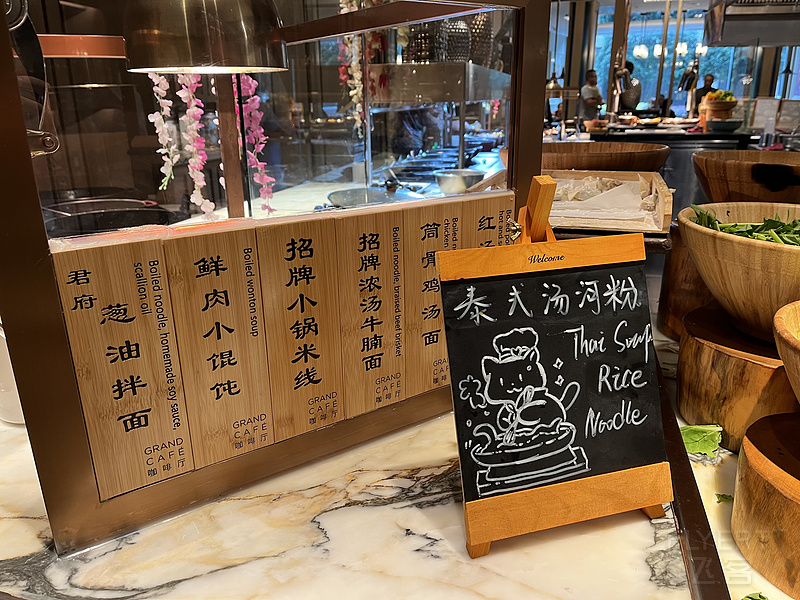 君府
葱油拌面
Boiled noodle, homemade soy sauce,
scallion oil
GRAND
CAFÉ
咖啡厅
鲜肉小馄饨
Boiled wonton soup
GRAND
CAFÉ
咖啡厅
招牌小锅米线
GRAND
CAFÉ
咖啡厅
招牌浓汤牛腩面
Boiled noodle, braised beef brisket
GRAND
CAFÉ
咖啡厅
筒骨鸡汤面
Boiled noodle
chicken
GRAND
CAFÉ
咖啡厅
红汤
Boiled
hot and
Welcome
泰式汤河粉
Thai Soup
Rice
Noodle